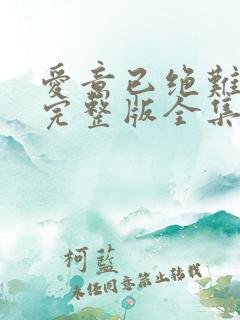 愛意已绝難
完整版全集
柯藍
未经同意禁止转载